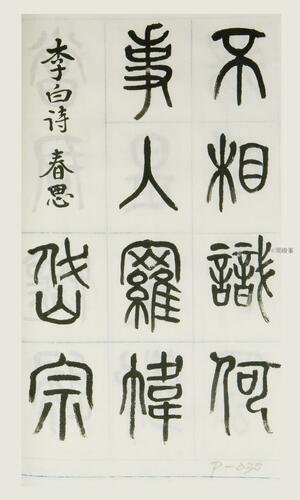 不相識何
事入羅幃
李白诗 春思
岱宗
P-035